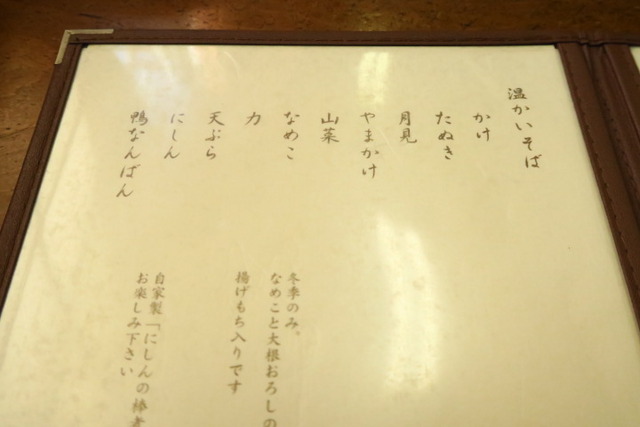 温かいそば
かけ
たぬき
月見
やまかけ
山菜
なめこ
力
天ぷら
にしん
鴨なんばん
冬季のみ。
なめこと大根おろしの
揚げもち入りです
自家製「にしんの棒煮
お楽しみ下さい